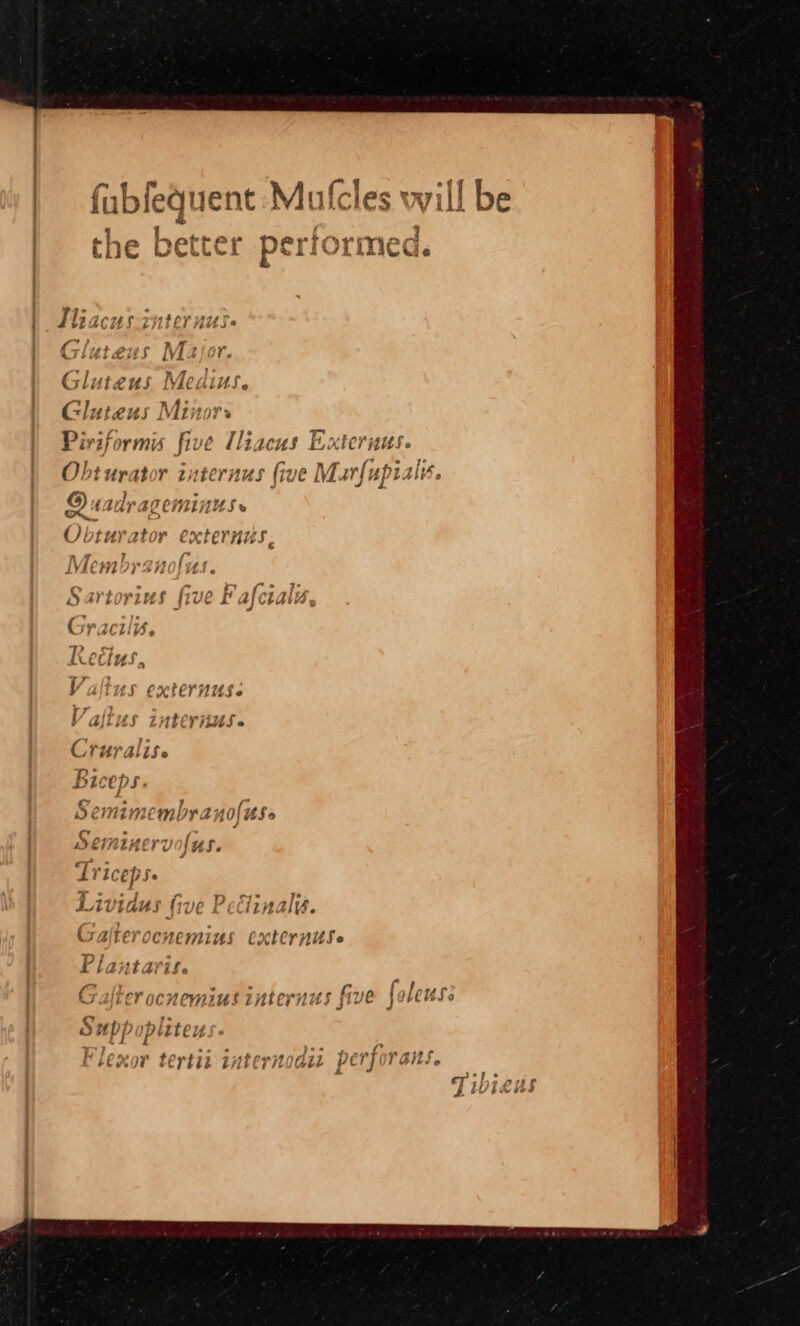 ſubſequent Muſcles will be
the better performed.
Iliacus internus.
Glutæus Major.
Gluteus Medius.
Gluteus Minor.
Piriformis ſive Iliacus Externus.
Obturator internus ſive Marſupialis.
Quadrageminus.
Obturator externus,
Membranoſus.
Sartorius ſive Faſcialis,
Gracilis,
Rectus,
Vaſtus externus:
Vaſtus internus.
Cruralis.
Biceps.
Semimembranoſus.
Seminervoſus.
Triceps.
Lividus ſive Pectinalis.
Gaſterocnemius externus.
Plantaris.
Gaſterocnemius internus ſive ſoleus:
Suppopliteus.
Flexor tertii internodii perforans.
Tibiæus